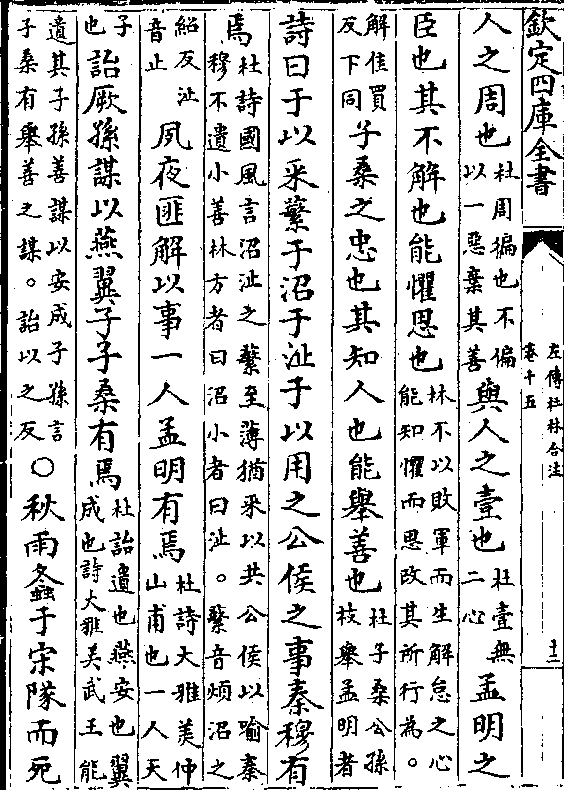 欽定四庫全書
左傳杜林合注
卷十五
十二
人之周也杜周徧也不偏以一惡棄其善與人之壹也杜壹無二心孟明之
臣也其不解也能懼思也林不以敗軍而生解怠之心能知懼而思改其所行為。
解佳買反下同子桑之忠也其知人也能舉善也杜子桑公孫枝舉孟明者
詩曰于以采蘩于沼于沚于以用之公侯之事秦穆有
焉杜詩國風言沼沚之蘩至薄猶采以共公侯以喻秦穆不遺小善林方者曰沼小者曰沚。蘩音煩沼之
紹反沚音止夙夜匪解以事一人孟明有焉杜詩大雅美仲山甫也一人天
子也詒厥孫謀以燕翼子子桑有焉杜詒遺也燕安也翼成也詩大雅美武王能
遺其子孫善謀以安成子孫言子桑有舉善之謀。詒以之反○秋雨螽于宋隊而死